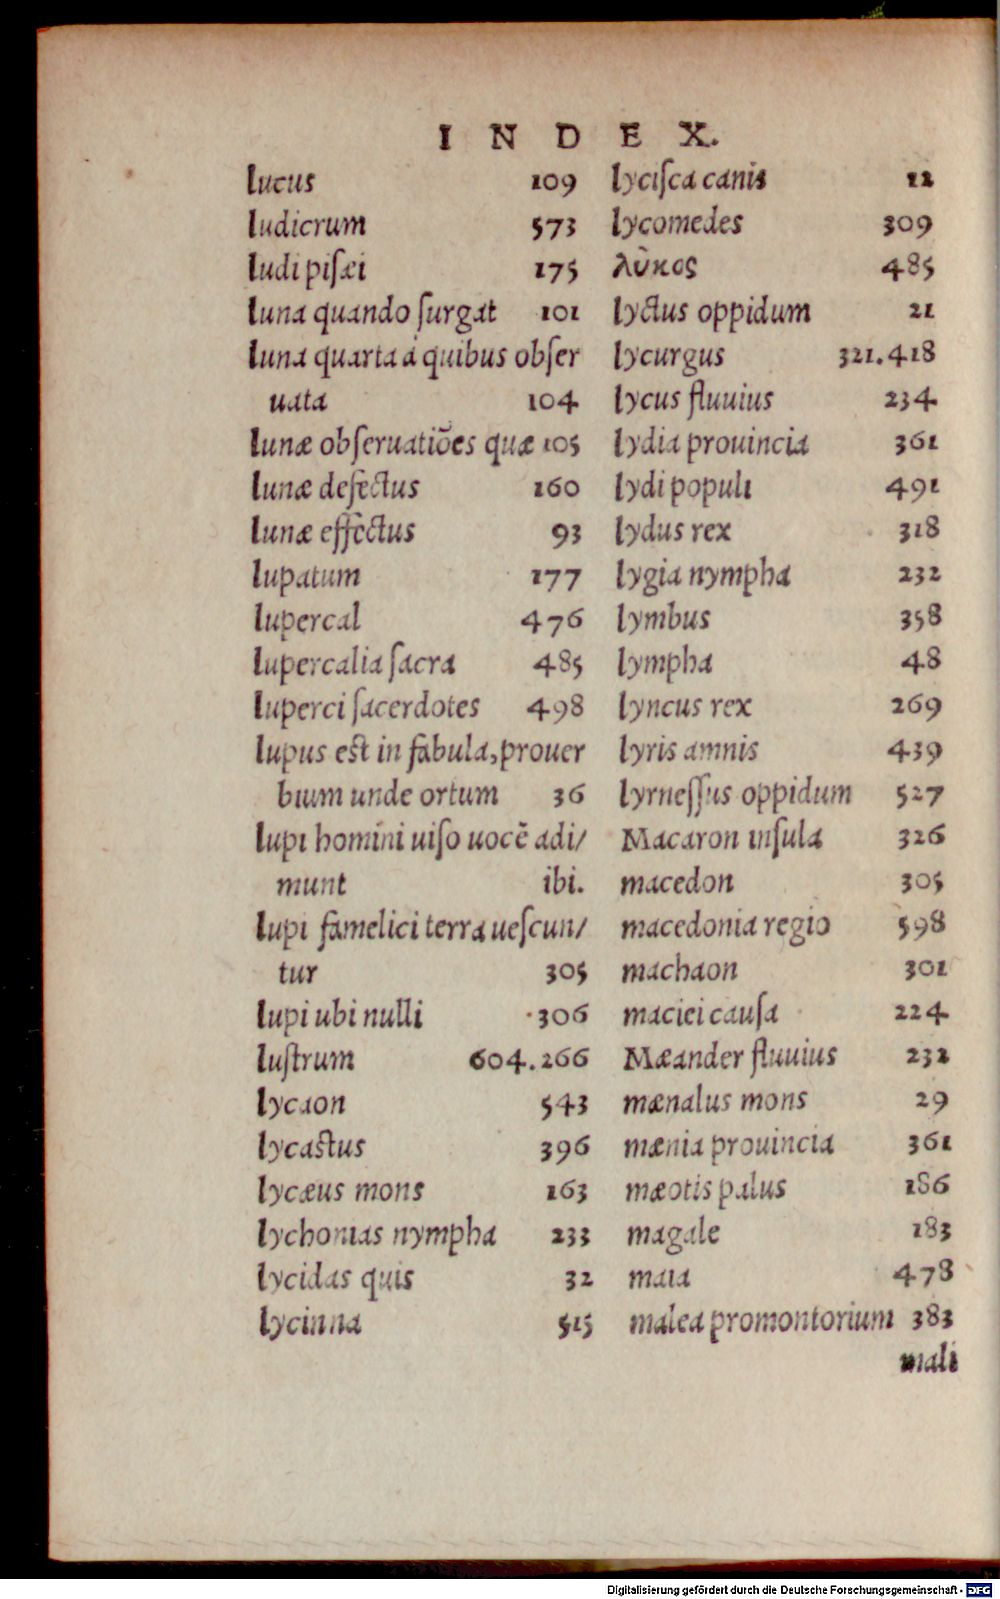 INDEX.
lucus 109
ludicrum 573
ludi pisæi 175
luna quando surgat 101
luna quarta à quibus obser
uata 104
lunæ obseruatiões quæ 105
lunæ defectus 160
lunæ effectus 93
lupatum 177
lupercal 476
lupercalia sacra 485
luperci sacerdotes 498
lupus est in fabula, prouer
bium unde ortum 36
lupi homini uiso uocē adi/
munt ibi.
lupi famelici terra uescun/
tur 305
lupi ubi nulli 306
lustrum 604.266
lycaon 543
lycastus 396
lycæus mons 163
lychonias nympha 233
lycidas quis 32
lycinna 515
lycisca canis 12
lycomedes 309
λῦκος 485
lyctus oppidum 21
lycurgus 321.418
lycus fluuius 234
lydia prouincia 361
lydi populi 491
lydus rex 318
lygia nympha 232
lymbus 358
lympha 48
lyncus rex 269
lyris amnis 439
lyrnessus oppidum 527
Macaron insula 326
macedon 305
macedonia regio 598
machaon 301
maciei causa 224
Mæander fluuius 232
mænalus mons 29
mænia prouincia 361
mæotis palus 186
magale 183
maia 478
malea promontorium 383
mali
Digitalisierung gefördert durch die Deutsche Forschungsgemeinschaft - DFG